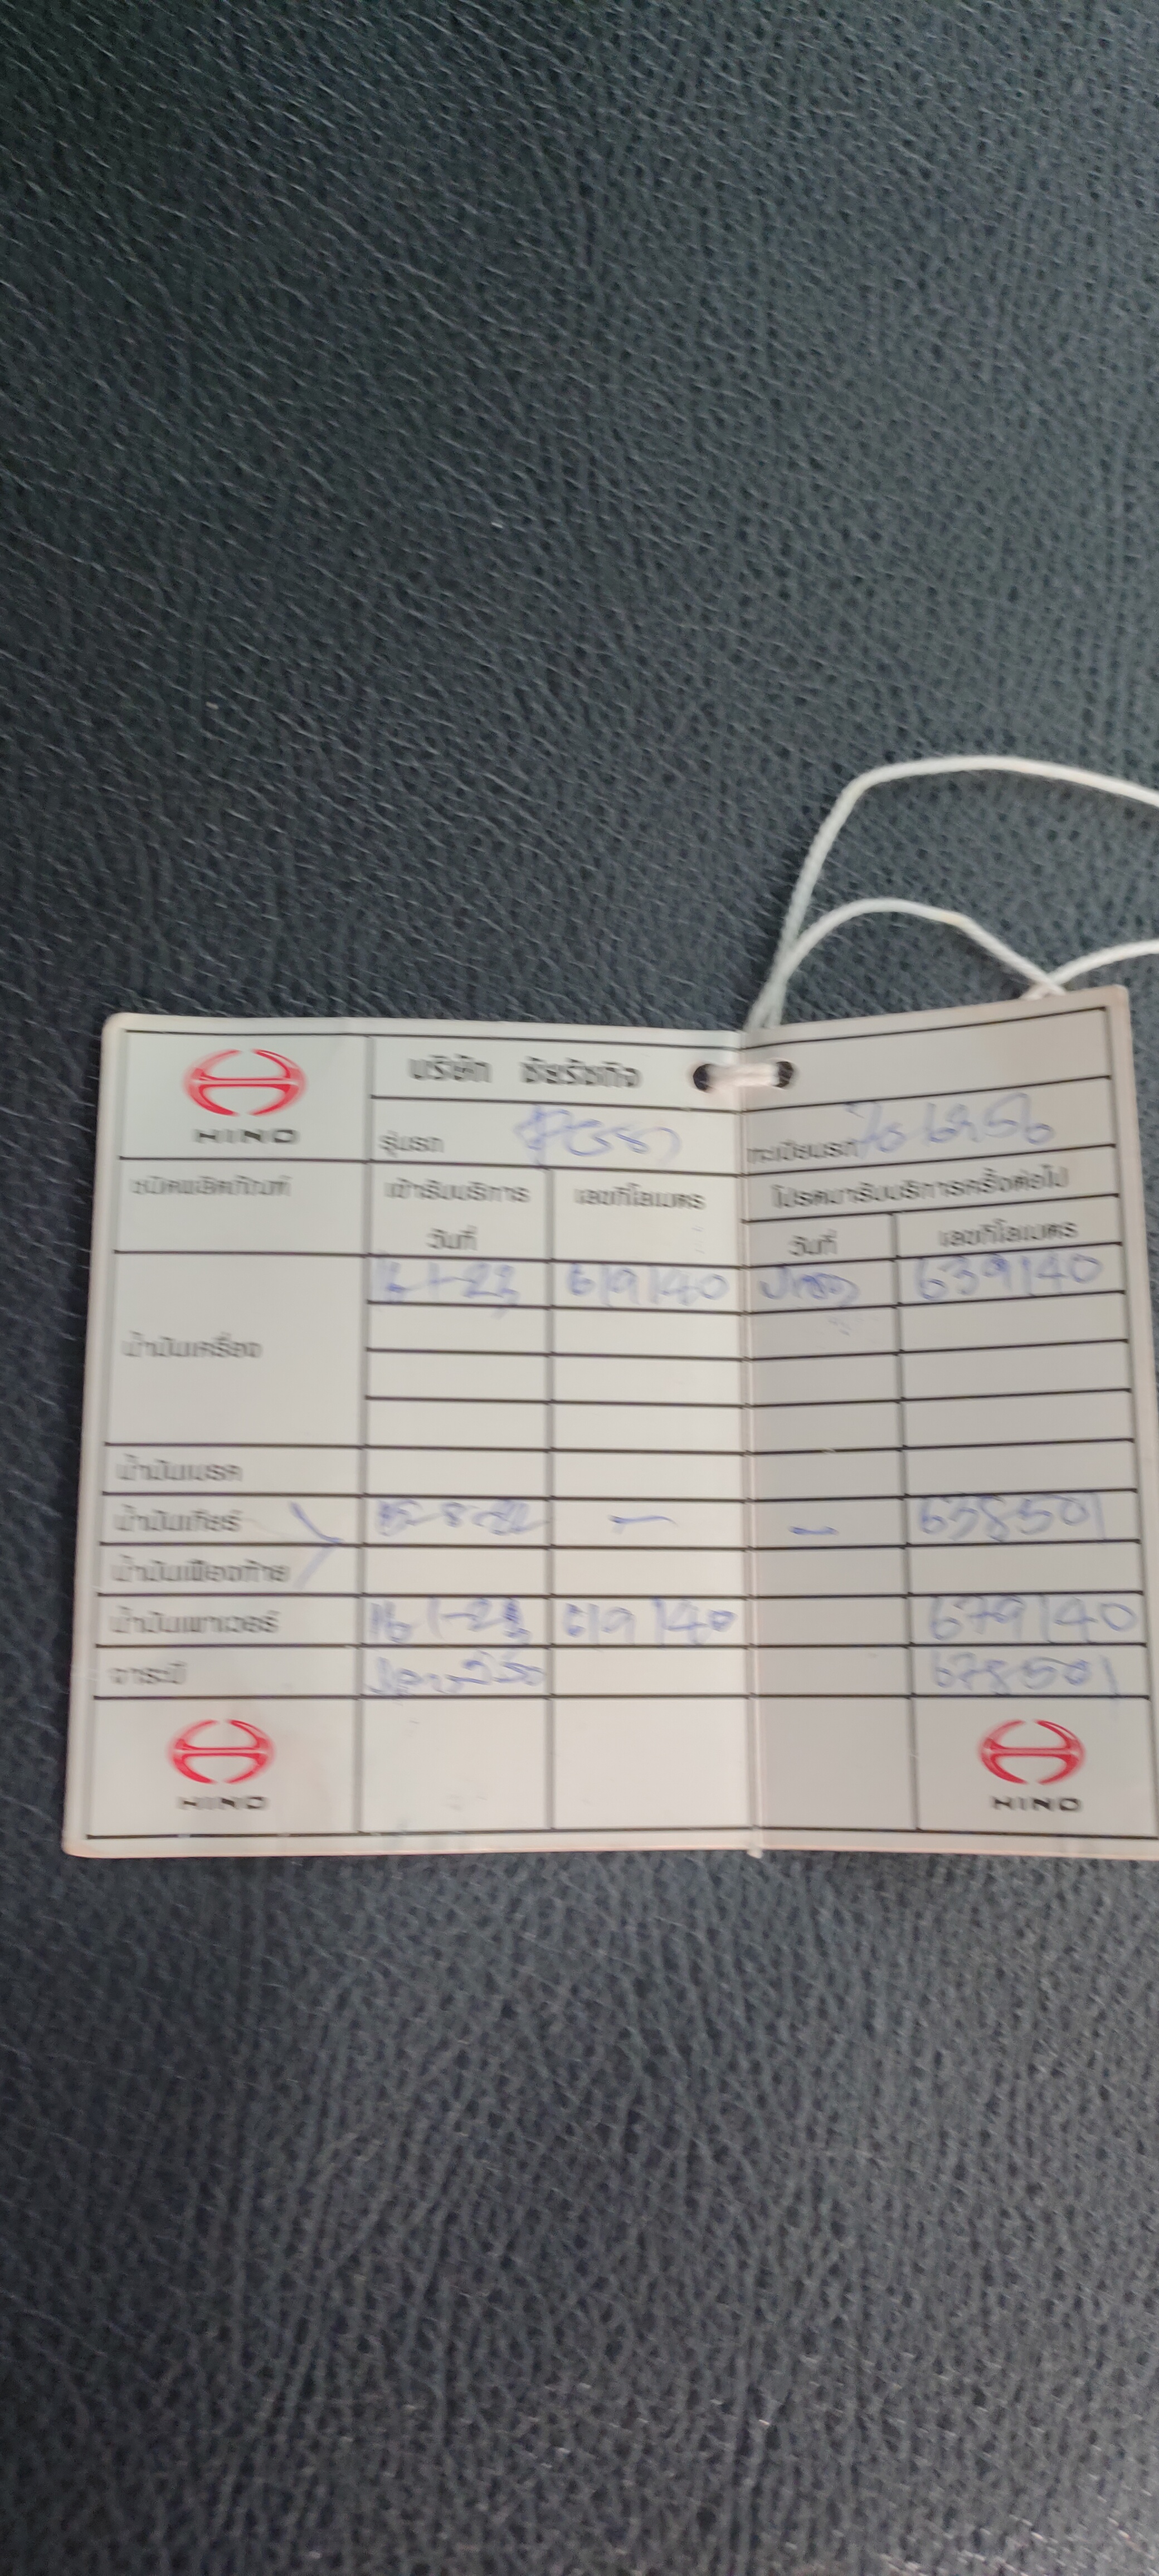 HINO
บริษัท ชัยรัชกิจ
รุ่นรถ
ทะเบียนรถ
ชนิดผลิตภัณฑ์
เข้ารับบริการ
วันที่
เลขกิโลเมตร
โปรดมารับบริการครั้งต่อไป
วันที่
เลขกิโลเมตร
น้ำมันเครื่อง
16-1-23 619140 639140
น้ำมันเบรค
น้ำมันเกียร์ 15-8-22 - - 638501
น้ำมันเฟืองท้าย
น้ำมันเพาเวอร์ 16-1-23 619140 679140
จาระบี 678501
HINO
HINO